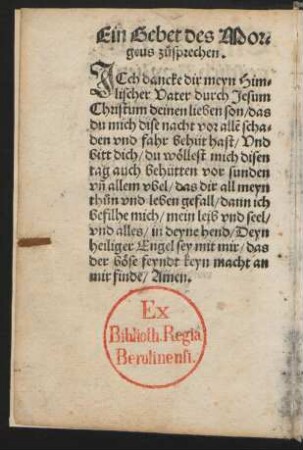 Ein Gebet des Mor⸗
gens zůsprechen.
ICch dancke dir meyn Him⸗
lischer Vater durch Jesum
Christum deinen lieben son/das
du mich dise nacht vor allē scha⸗
den vnd fahr behüt hast/ Vnd
bitt dich/ du wöllest mich disen
tag auch behütten vor sunden
vñ allem vbel/ das dir all meyn
thůn vnd leben gefall/ dann ich
befilhe mich/ mein leib vnd seel/
vnd alles/ in deyne hend/ Deyn
heiliger Engel sey mit mir/ das
der böse feyndt keyn macht an
mir finde/ Amen.
Ex
Biblioth. Regia
Berolinensi.